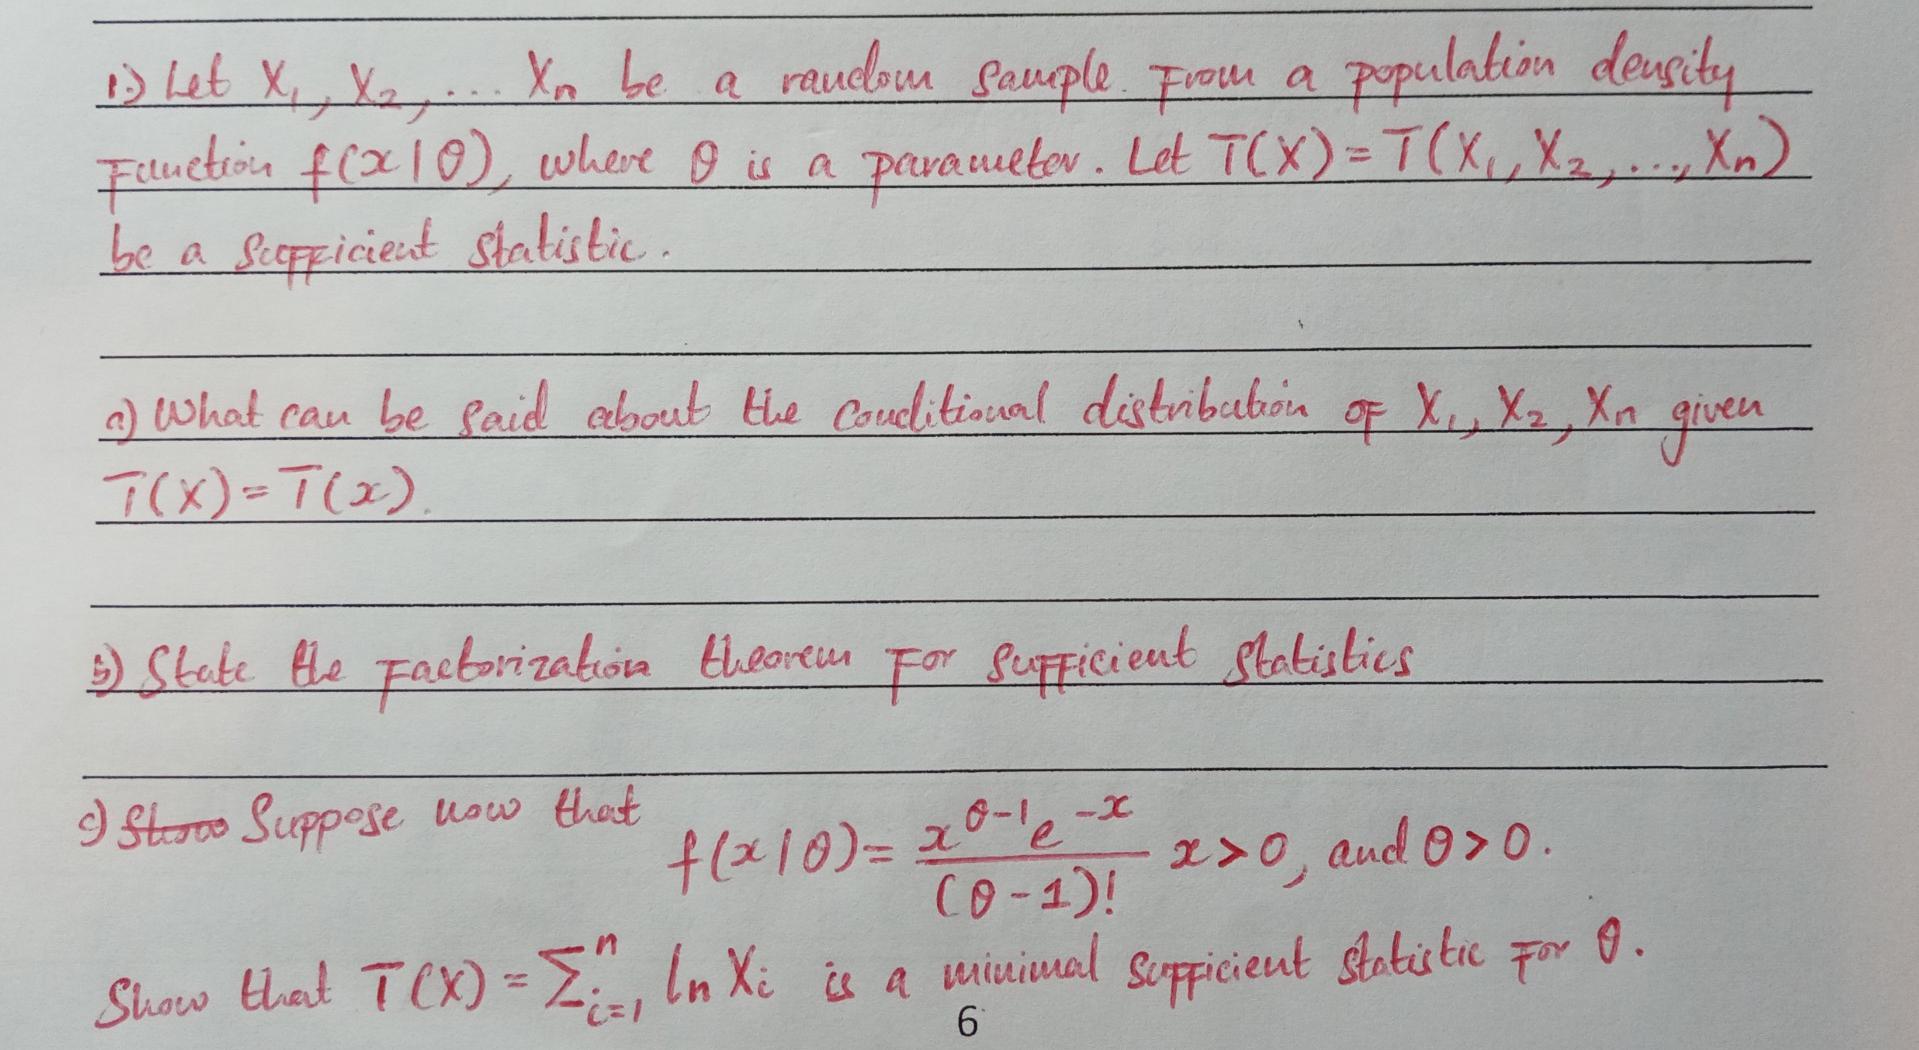 1.) Let X₁, X₂, ... Xn be a random sample from a population density
function f(x|θ), where θ is a parameter. Let T(X) = T(X₁, X₂, ..., Xn)
be a sufficient statistic.
a) What can be said about the conditional distribution of X₁, X₂, Xn given
T(X) = T(x).
b) State the factorization theorem for sufficient statistics
c) ~~Show~~ Suppose now that f(x|θ) = \frac{x^{θ-1} e^{-x}}{(θ-1)!} x > 0, and θ > 0.
Show that T(X) = Σ_{i=1}^{n} ln Xi is a minimal sufficient statistic for θ.
6